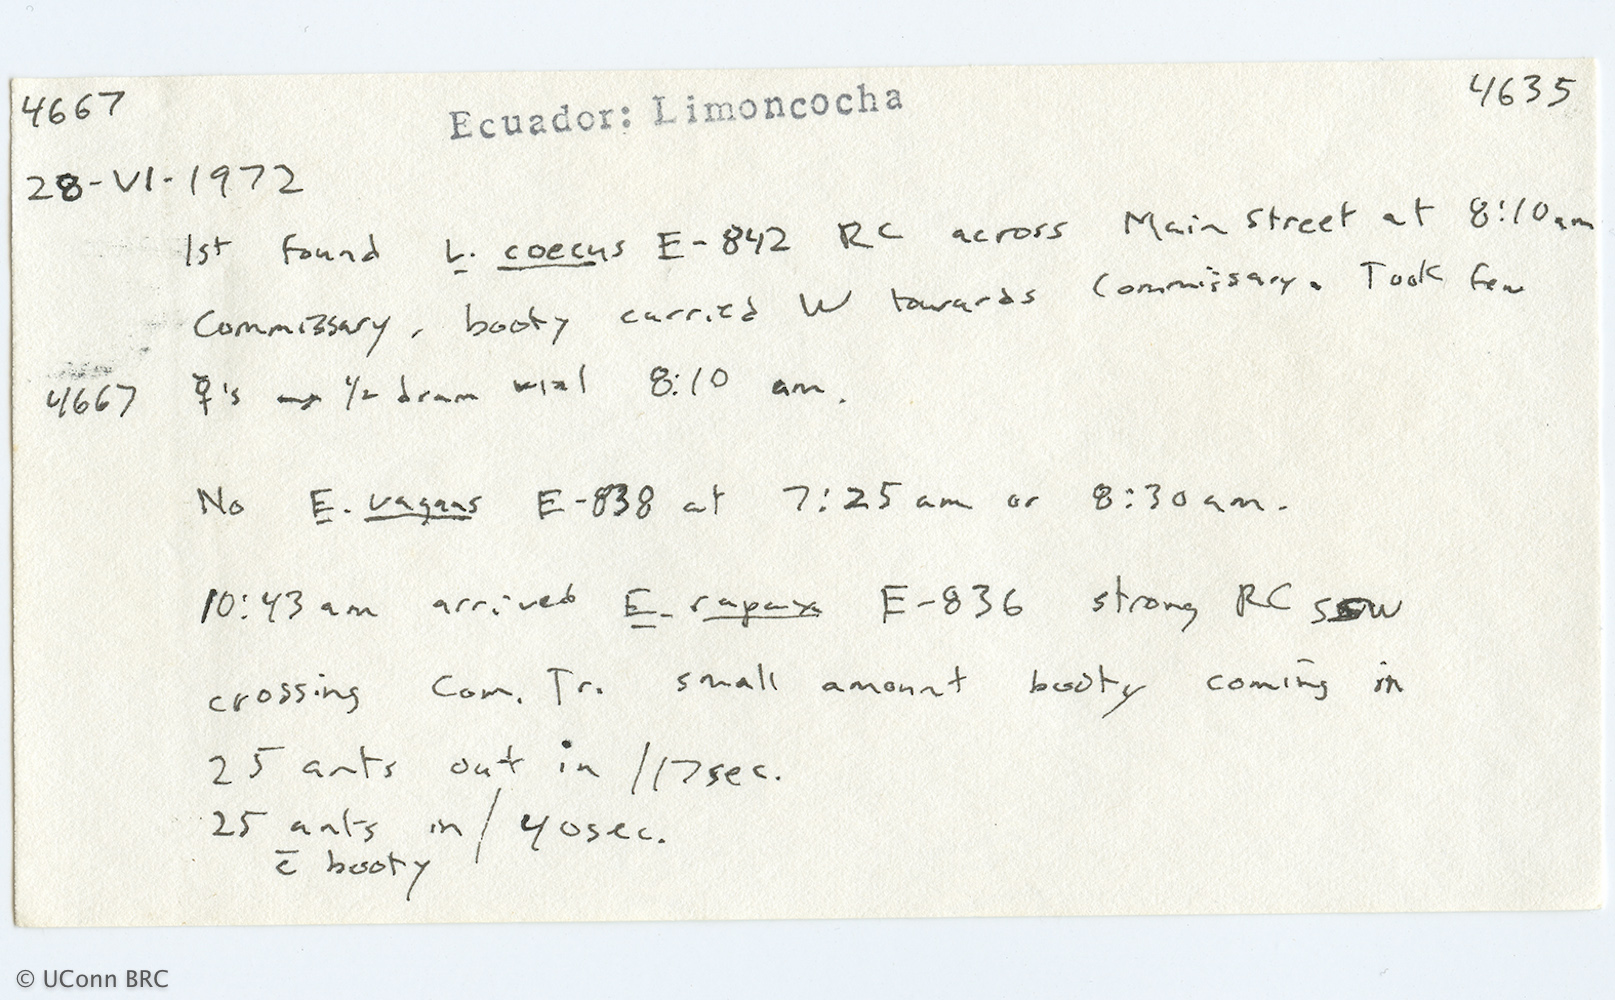 4667 Ecuador: Limoncocha 4635
28-VI-1972
1st found L. coecus E-842 RC across Main Street at 8:10am
Commissary, booty carried W towards Commissary. Took few
4667 ☿'s → 1/2 dram vial 8:10 am.
No E. vagans E-838 at 7:25 am or 8:30 am.
10:43 am arrived E. rapax E-836 strong RC SSW
crossing Com. Tr. small amount booty coming in
25 ants out in /17sec.
25 ants in / 40sec.
c̄ booty
© UConn BRC